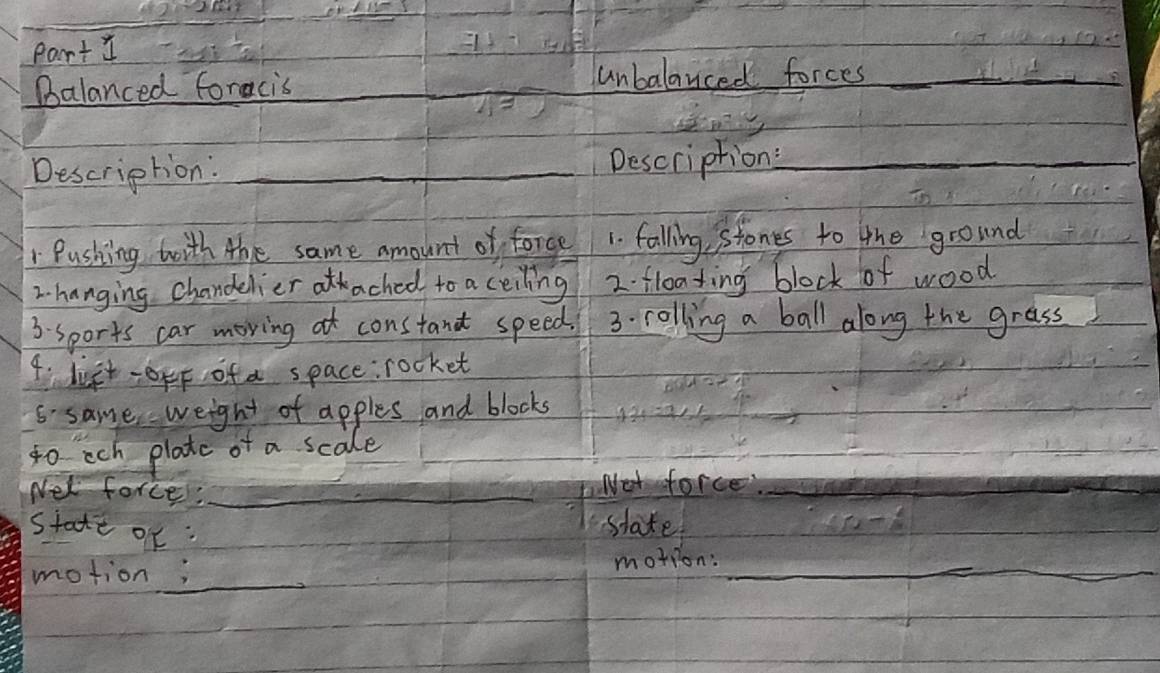 Part 1
Balanced foracis
Description:
1. Pushing with the same amount of force
2. hanging chandelier attached to a ceiling
3. sports car moving at constant speed.
4. lift-off of a space rocket
5. same weight of apples and blocks
to ech plate of a scale
Net force:
State of :
motion :
Unbalanced forces
Description:
1. falling stones to the ground
2. floating block of wood
3. rolling a ball along the grass
Net force:
state
motion: